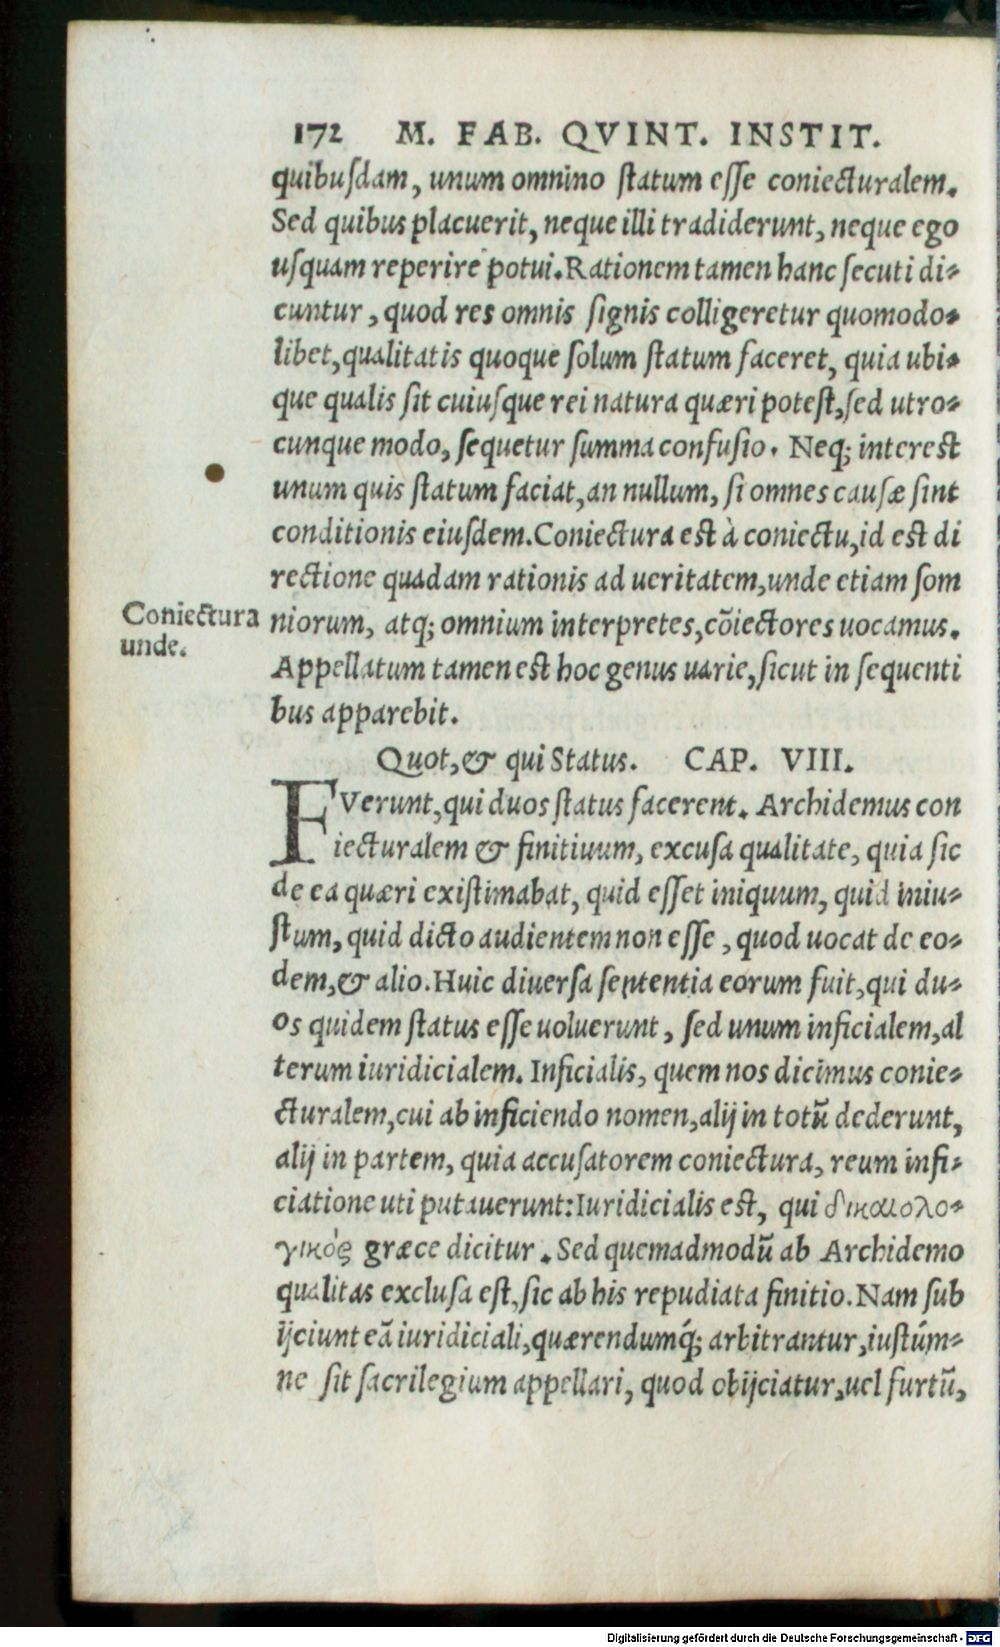 172 M. FAB. QVINT. INSTIT.
quibusdam, unum omnino statum esse coniecturalem.
Sed quibus placuerit, neque illi tradiderunt, neque ego
usquam reperire potui. Rationem tamen hanc secuti di-
cuntur, quod res omnis signis colligeretur quomodo-
libet, qualitatis quoque solum statum faceret, quia ubi-
que qualis sit cuiusque rei natura quæri potest, sed utro-
cunque modo, sequetur summa confusio. Neq; interest
unum quis statum faciat, an nullum, si omnes causæ sint
conditionis eiusdem. Coniectura est à coniectu, id est di
rectione quadam rationis ad ueritatem, unde etiam som
Coniectura
unde.
niorum, atq; omnium interpretes, cõiectores uocamus.
Appellatum tamen est hoc genus uarie, sicut in sequenti
bus apparebit.
Quot, & qui Status. CAP. VIII.
FVerunt, qui duos status facerent. Archidemus con
iecturalem & finitiuum, excusa qualitate, quia sic
de ea quæri existimabat, quid esset iniquum, quid iniu-
stum, quid dicto audientem non esse, quod uocat de eo-
dem, & alio. Huic diuersa sententia eorum fuit, qui du-
os quidem status esse uoluerunt, sed unum inficialem, al
terum iuridicialem. Inficialis, quem nos dicimus conie-
cturalem, cui ab inficiendo nomen, alij in totũ dederunt,
alij in partem, quia accusatorem coniectura, reum infi-
ciatione uti putauerunt: Iuridicialis est, qui δικαιολο-
γικός græce dicitur. Sed quemadmodũ ab Archidemo
qualitas exclusa est, sic ab his repudiata finitio. Nam sub
ijciunt eã iuridiciali, quærendumq́; arbitrantur, iustúm-
ne sit sacrilegium appellari, quod obijciatur, uel furtũ,
Digitalisierung gefördert durch die Deutsche Forschungsgemeinschaft - DFG